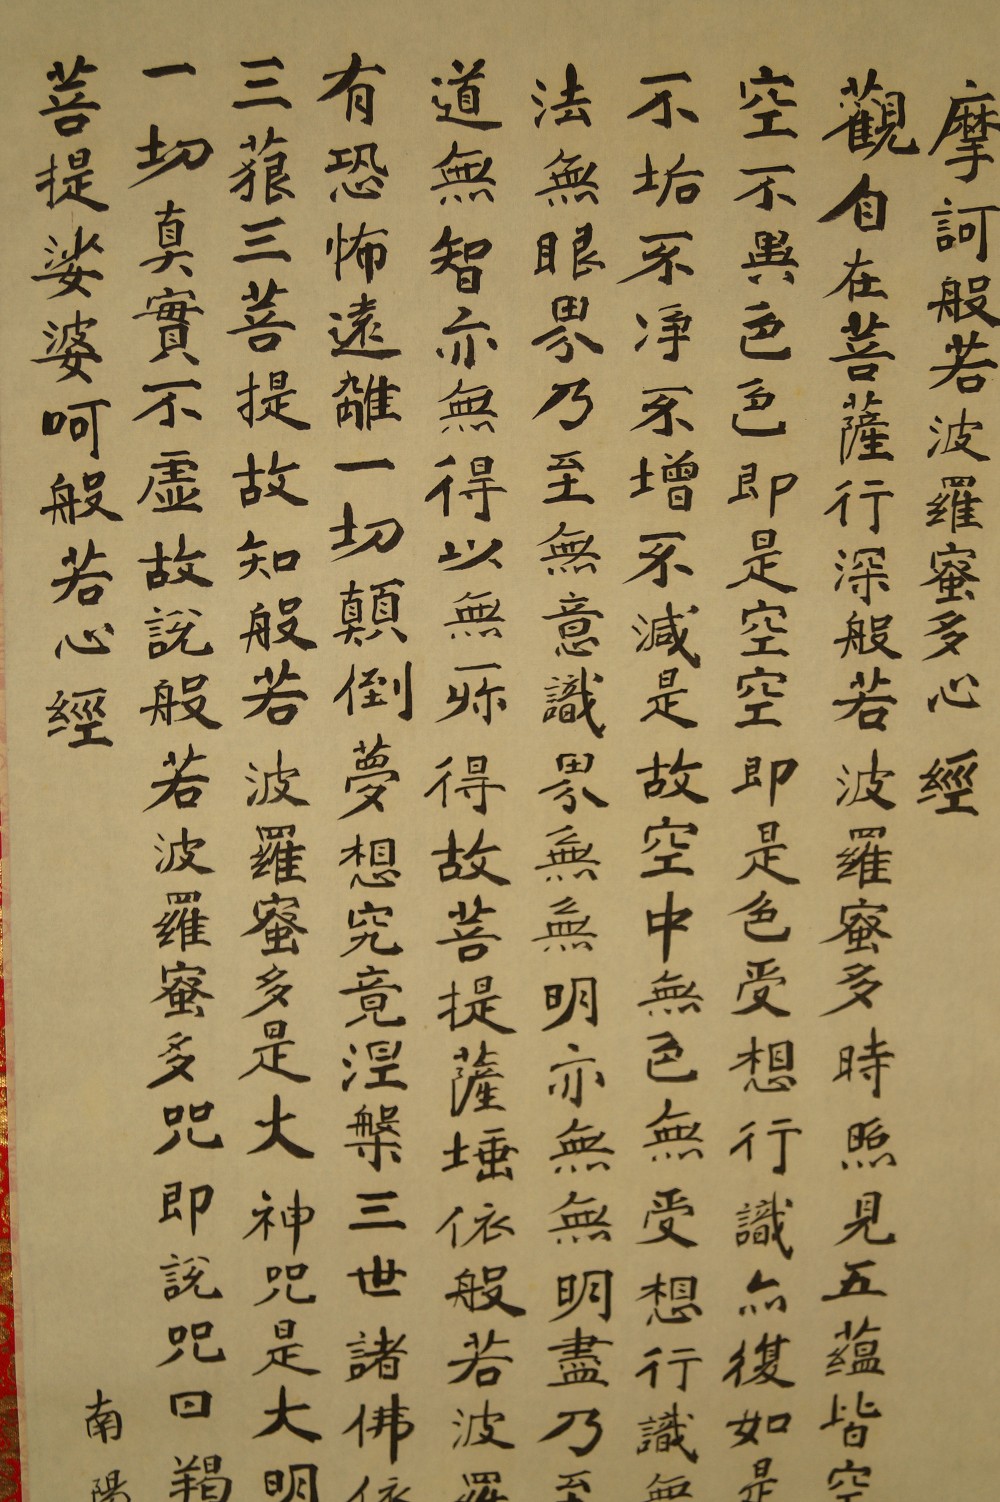 摩訶般若波羅蜜多心經
觀自在菩薩行深般若波羅蜜多時照見五蘊皆空
空不異色色即是空空即是色受想行識亦復如是
不垢不淨不增不減是故空中無色無受想行識無
法無眼界乃至無意識界無無明亦無無明盡乃至
道無智亦無得以無所得故菩提薩埵依般若波羅
有恐怖遠離一切顛倒夢想究竟涅槃三世諸佛依
三藐三菩提故知般若波羅蜜多是大神咒是大明
一切真實不虛故說般若波羅蜜多咒即說咒曰揭
菩提娑婆呵般若心經
南陽